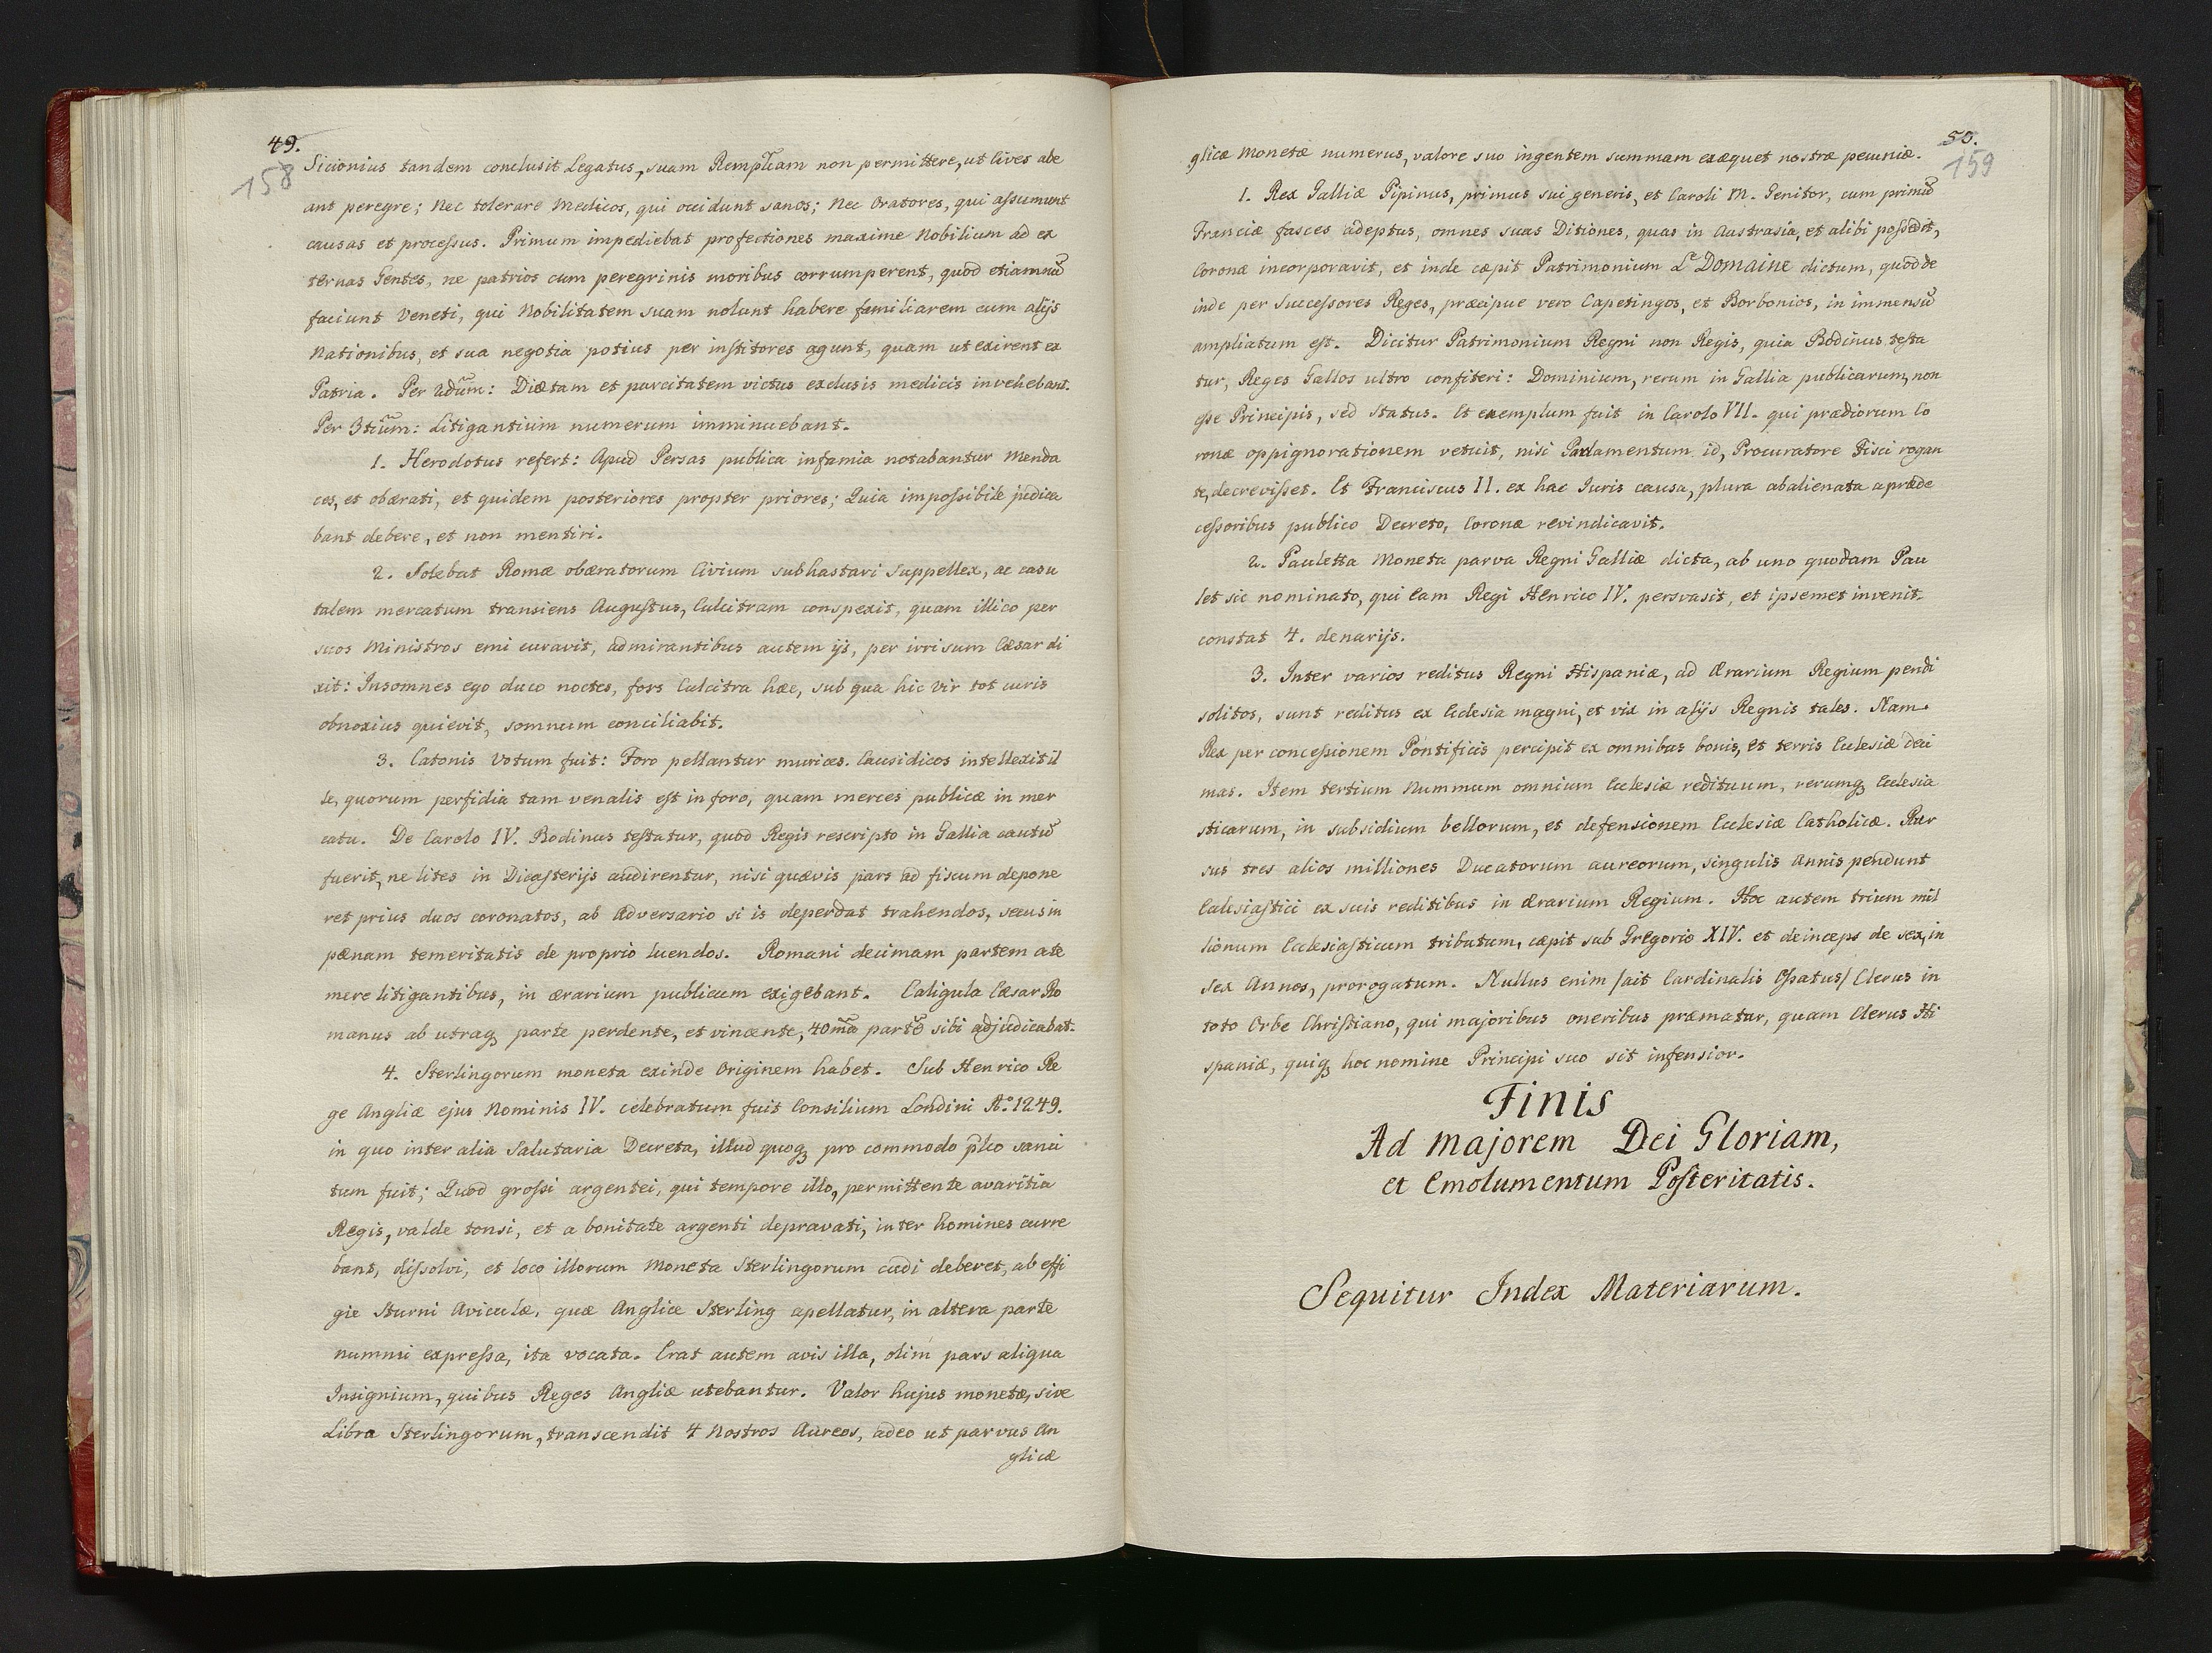 49.
158
Sicionius tandem conclusit Legatus, suam Remplcam non permittere, ut Cives abe
ant peregre; Nec tolerare Medicos, qui occidunt sanos; Nec Oratores, qui assumunt
causas et processus. Primum impediebat profectiones maxime Nobilium ad ex
ternas Gentes, ne patrios cum peregrinis moribus corrumperent, quod etiamnū
faciunt Veneti, qui Nobilitatem suam nolunt habere familiarem cum alijs
Nationibus, et sua negotia potius per institores agunt, quam ut exirent ex
Patria. Per 2dum: Diætam et parcitatem victus exclusis medicis invehebant.
Per 3tium: Litigantium numerum imminuebant.
1. Herodotus refert: Apud Persas publica infamia notabantur Menda
ces, et obærati, et quidem posteriores propter priores; Quia impossibile judica
bant debere, et non mentiri.
2. Solebat Romæ obæratorum Civium subhastari Suppellex, ac casu
talem mercatum transiens Augustus, Culcitram conspexit, quam illico per
suos Ministros emi curavit, admirantibus autem ijs, per irrisum Cæsar di
xit: Insomnes ego duco noctes, fors Culcitra hæc, sub qua hic Vir tot curis
obnoxius quievit, somnum conciliabit.
3. Catonis Votum fuit: Foro pellantur murices. Causidicos intellexit il
le, quorum perfidia tam venalis est in foro, quam merces publicæ in mer
catu. De Carolo IV. Bodinus testatur, quod Regis rescripto in Gallia cautū
fuerit, ne lites in Dicasterijs audirentur, nisi quævis pars ad fiscum depone
ret prius duos coronatos, ab Adversario si is deperdat trahendos, secus in
pænam temeritatis de proprio luendos. Romani decimam partem a te
mere litigantibus, in ærarium publicum exigebant. Caligula Cæsar Ro
manus ab utraq parte perdente, et vincente, 40ma partē sibi adjudicabat.
4. Sterlingorum moneta exinde Originem habet. Sub Henrico Re
ge Angliæ ejus Nominis IV. celebratum fuit Consilium Londini Ao. 1249.
in quo inter alia Salutaria Decreta, illud quoq pro commodo plco sanci
tum fuit; Quod grossi argentei, qui tempore illo, permittente avaritia
Regis, valde tonsi, et a bonitate argenti depravati, inter homines curre
bant, dissolvi, et loco illorum Moneta Sterlingorum cudi deberet, ab effi
gie Sturni Aviculæ, quæ Anglice Sterling apellatur, in altera parte
nummi expressa, ita vocata. Erat autem avis illa, olim pars aliqua
Insignium, quibus Reges Angliæ utebantur. Valor hujus monetæ, sive
Libra Sterlingorum, transcendit 4 Nostros Aureos, adeo ut parvus An
glicæ
50.
159
glicæ Monetæ numerus, valore suo ingentem summam exæquet nostræ pecuniæ.
1. Rex Galliæ Pipinus, primus sui generis, et Caroli M. Genitor, cum primū
Franciæ fasces adeptus, omnes suas Ditiones, quas in Austrasia, et alibi possedit,
Coronæ incorporavit, et inde cæpit Patrimonium Le Domaine dictum, quod de
inde per Successores Reges, præcipue vero Capetingos, et Borbonios, in immensū
ampliatum est. Dicitur Patrimonium Regni non Regis, quia Bodinus testa
tur, Reges Gallos ultro confiteri: Dominium, rerum in Gallia publicarum, non
esse Principis, sed Status. Et exemplum fuit in Carolo VII. qui prædiorum Co
ronæ oppignorationem vetuit, nisi Parlamentum id, Procuratore Fisci rogan
te, decrevisset. Et Franciscus II. ex hac Juris causa, plura abalienata a præde
cessoribus publico Decreto, Coronæ revindicavit.
2. Pauletta Moneta parva Regni Galliæ dicta, ab uno quodam Pau
let sic nominato, qui Eam Regi Henrico IV. persvasit, et ipsemet invenit.
constat 4. denarijs.
3. Inter varios reditus Regni Hispaniæ, ad Ærarium Regium pendi
solitos, sunt reditus ex Ecclesia magni, et vix in alijs Regnis tales. Nam.
Rex per concessionem Pontificis percipit ex omnibus bonis, et terris Ecclesiæ deci
mas. Item tertium Nummum omnium Ecclesiæ redituum, rerumq Ecclesia
sticarum, in subsidium bellorum, et defensionem Ecclesiæ Catholicæ. Rur
sus tres alios milliones Ducatorum aureorum, singulis Annis pendunt
Ecclesiastici ex suis reditibus in Ærarium Regium. Hoc autem trium mil
lionum Ecclesiasticum tributum, cæpit sub Gregorio XIV. et deinceps de sex, in
sex Annos, prorogatum. Nullus enim /ait Cardinalis Ossatus/ Clerus in
toto Orbe Christiano, qui majoribus oneribus præmatur, quam Clerus Hi
spaniæ, quiq hoc nomine Principi suo sit infensior.
Finis
Ad Majorem Dei Gloriam,
et Emolumentum Posteritatis.
Sequitur Index Materiarum.